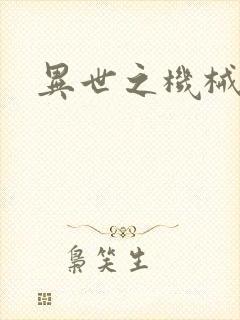 異世之機械
梟笑生